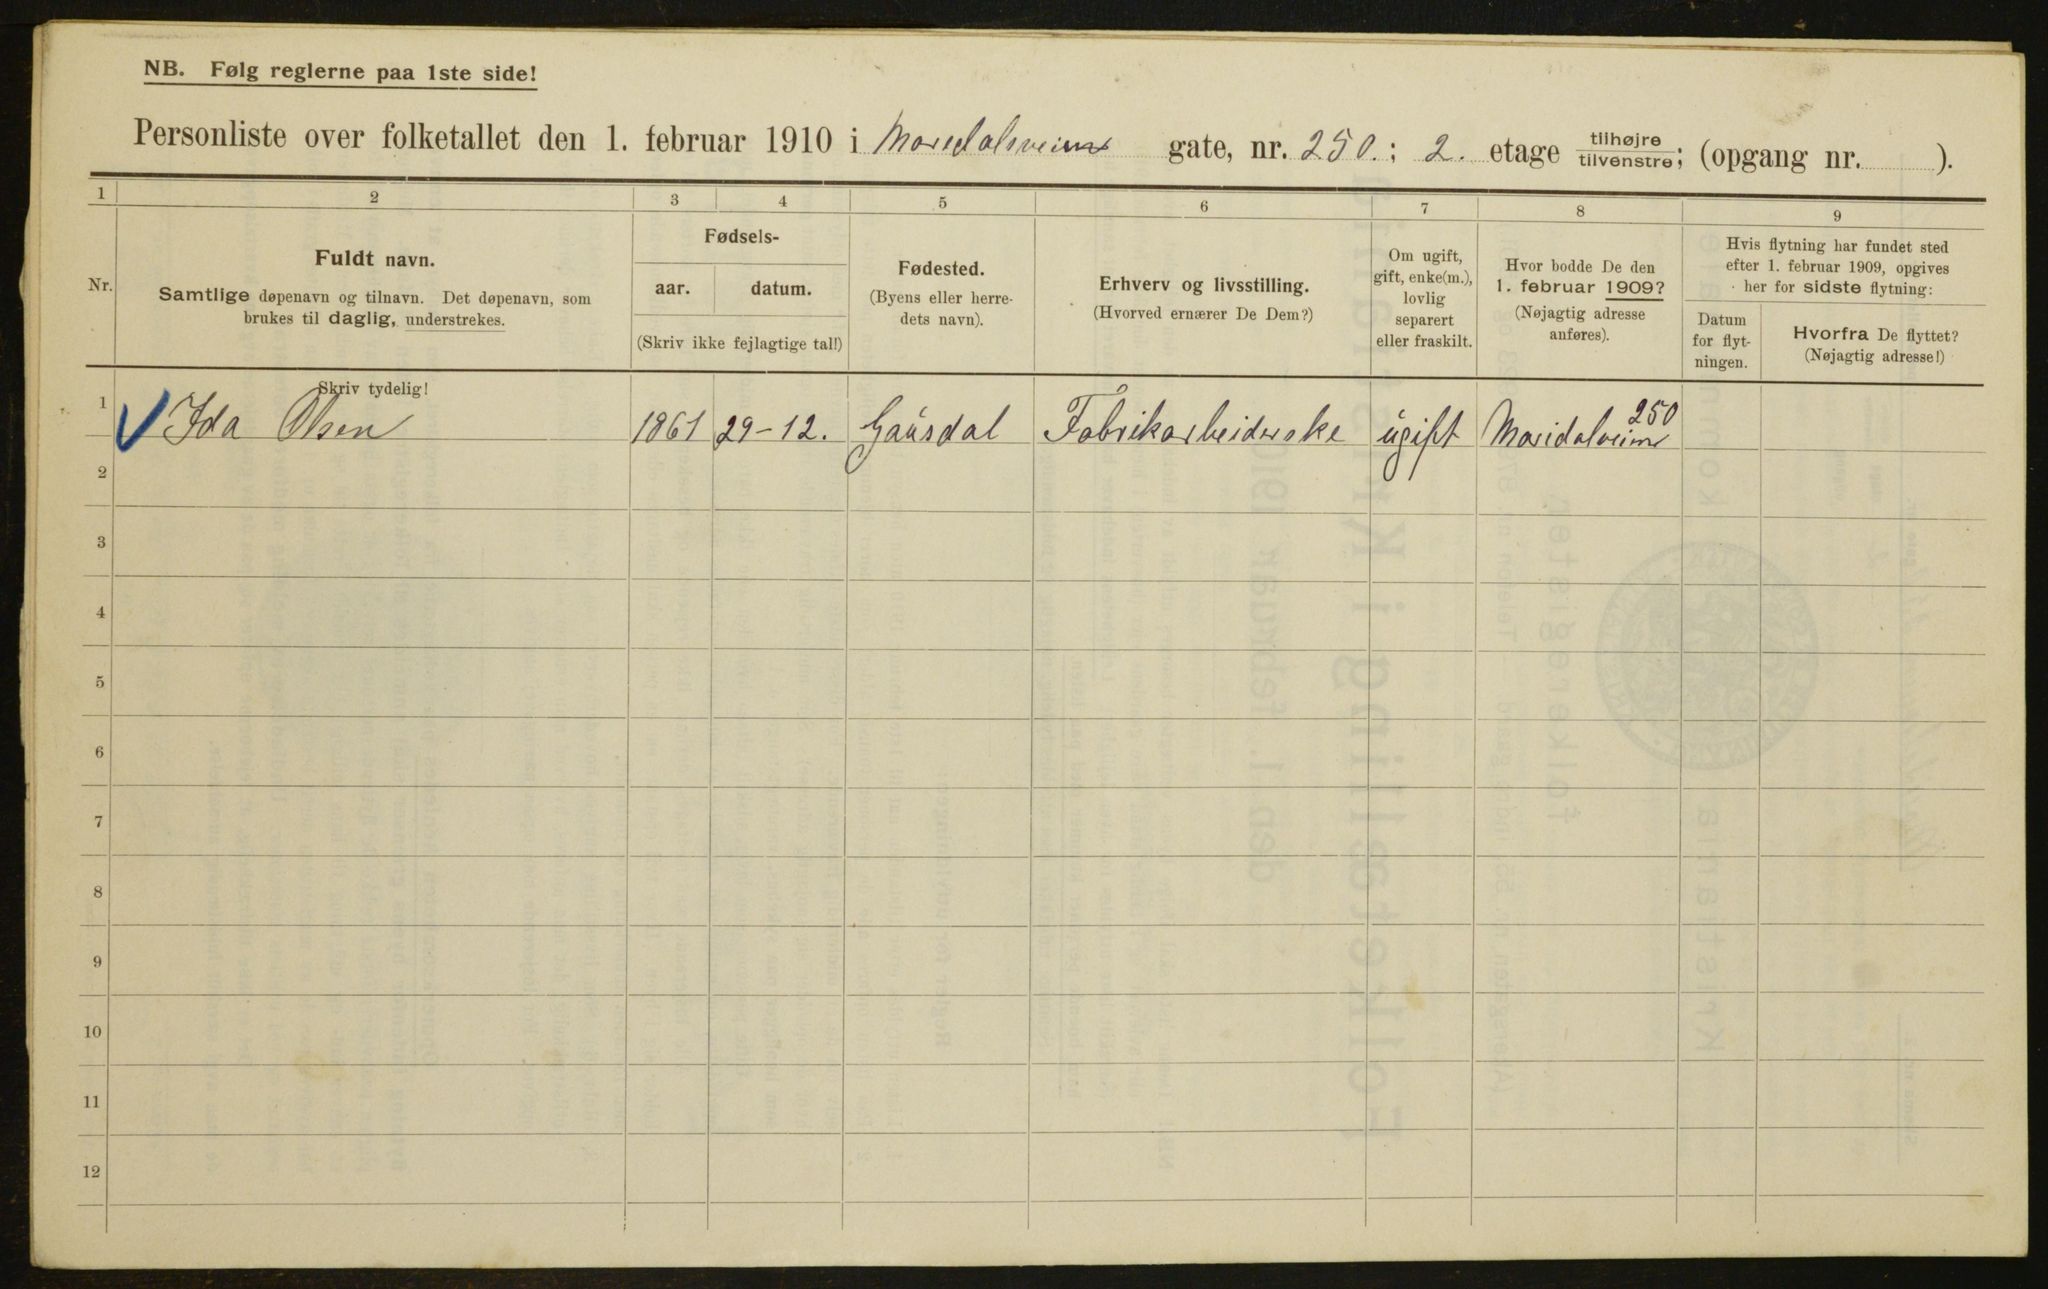 NB. Følg reglerne paa 1ste side!
Personliste over folketallet den 1. februar 1910 i Maridalsveien gate, nr. 250.; 2. etage tilhøjre / tilvenstre; (opgang nr. ).
1 2 3 4 5 6 7 8 9
Nr.
Fuldt navn.
Samtlige døpenavn og tilnavn. Det døpenavn, som
brukes til daglig, understrekes.
Fødsels-
aar. datum.
(Skriv ikke fejlagtige tal!)
Fødested.
(Byens eller herre-
dets navn).
Erhverv og livsstilling.
(Hvorved ernærer De Dem?)
Om ugift,
gift, enke(m.),
lovlig
separert
eller fraskilt.
Hvor bodde De den
1. februar 1909?
(Nøjagtig adresse
anføres).
Hvis flytning har fundet sted
efter 1. februar 1909, opgives
her for sidste flytning:
Datum
for flyt-
ningen.
Hvorfra De flyttet?
(Nøjagtig adresse!)
Skriv tydelig!
1 Ida Olsen 1861 29-12. Gausdal Fabrikarbeiderske ugift Maridalveien 250
2
3
4
5
6
7
8
9
10
11
12